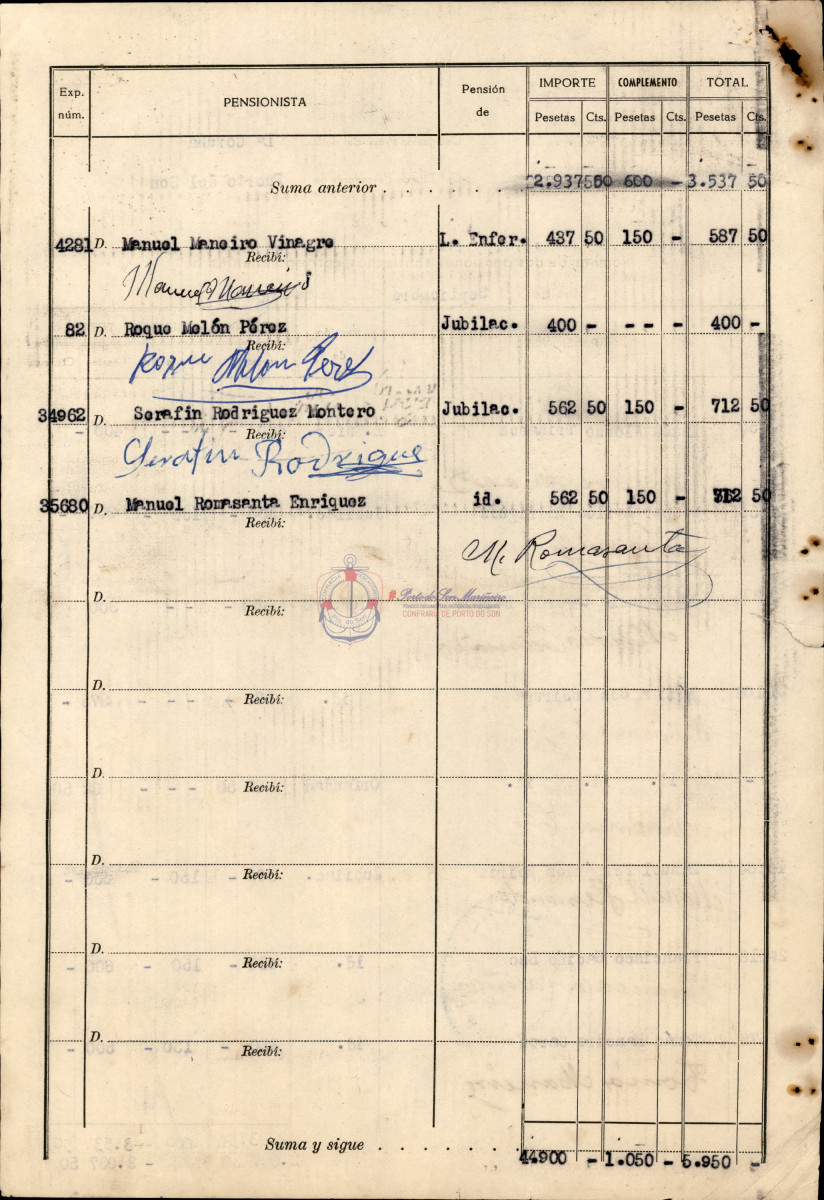 Exp. núm. PENSIONISTA Pensión de IMPORTE COMPLEMENTO TOTAL
Pesetas Cts. Pesetas Cts. Pesetas Cts.
Suma anterior . . . . . . . 2.937 50 600 - 3.537 50
4281 D. Manuel Maneiro Vinagre L. Enfer. 437 50 150 - 587 50
Recibí:
Manuel Maneiro
82 D. Roque Melón Pérez Jubilac. 400 - - - - 400 -
Recibí:
Roque Melon Perez
34962 D. Serafin Rodriguez Montero Jubilac. 562 50 150 - 712 50
Recibí:
Serafin Rodrigues
35680 D. Manuel Romasanta Enriquez id. 562 50 150 - 712 50
Recibí:
M. Romasanta
D.
Recibí:
Porto do Son Mariñeiro
CONFRARÍA DE PORTO DO SON
D.
Recibí:
D.
Recibí:
D.
Recibí:
D.
Recibí:
D.
Recibí:
Suma y sigue . . . . . . . 4.900 - 1.050 - 5.950 -